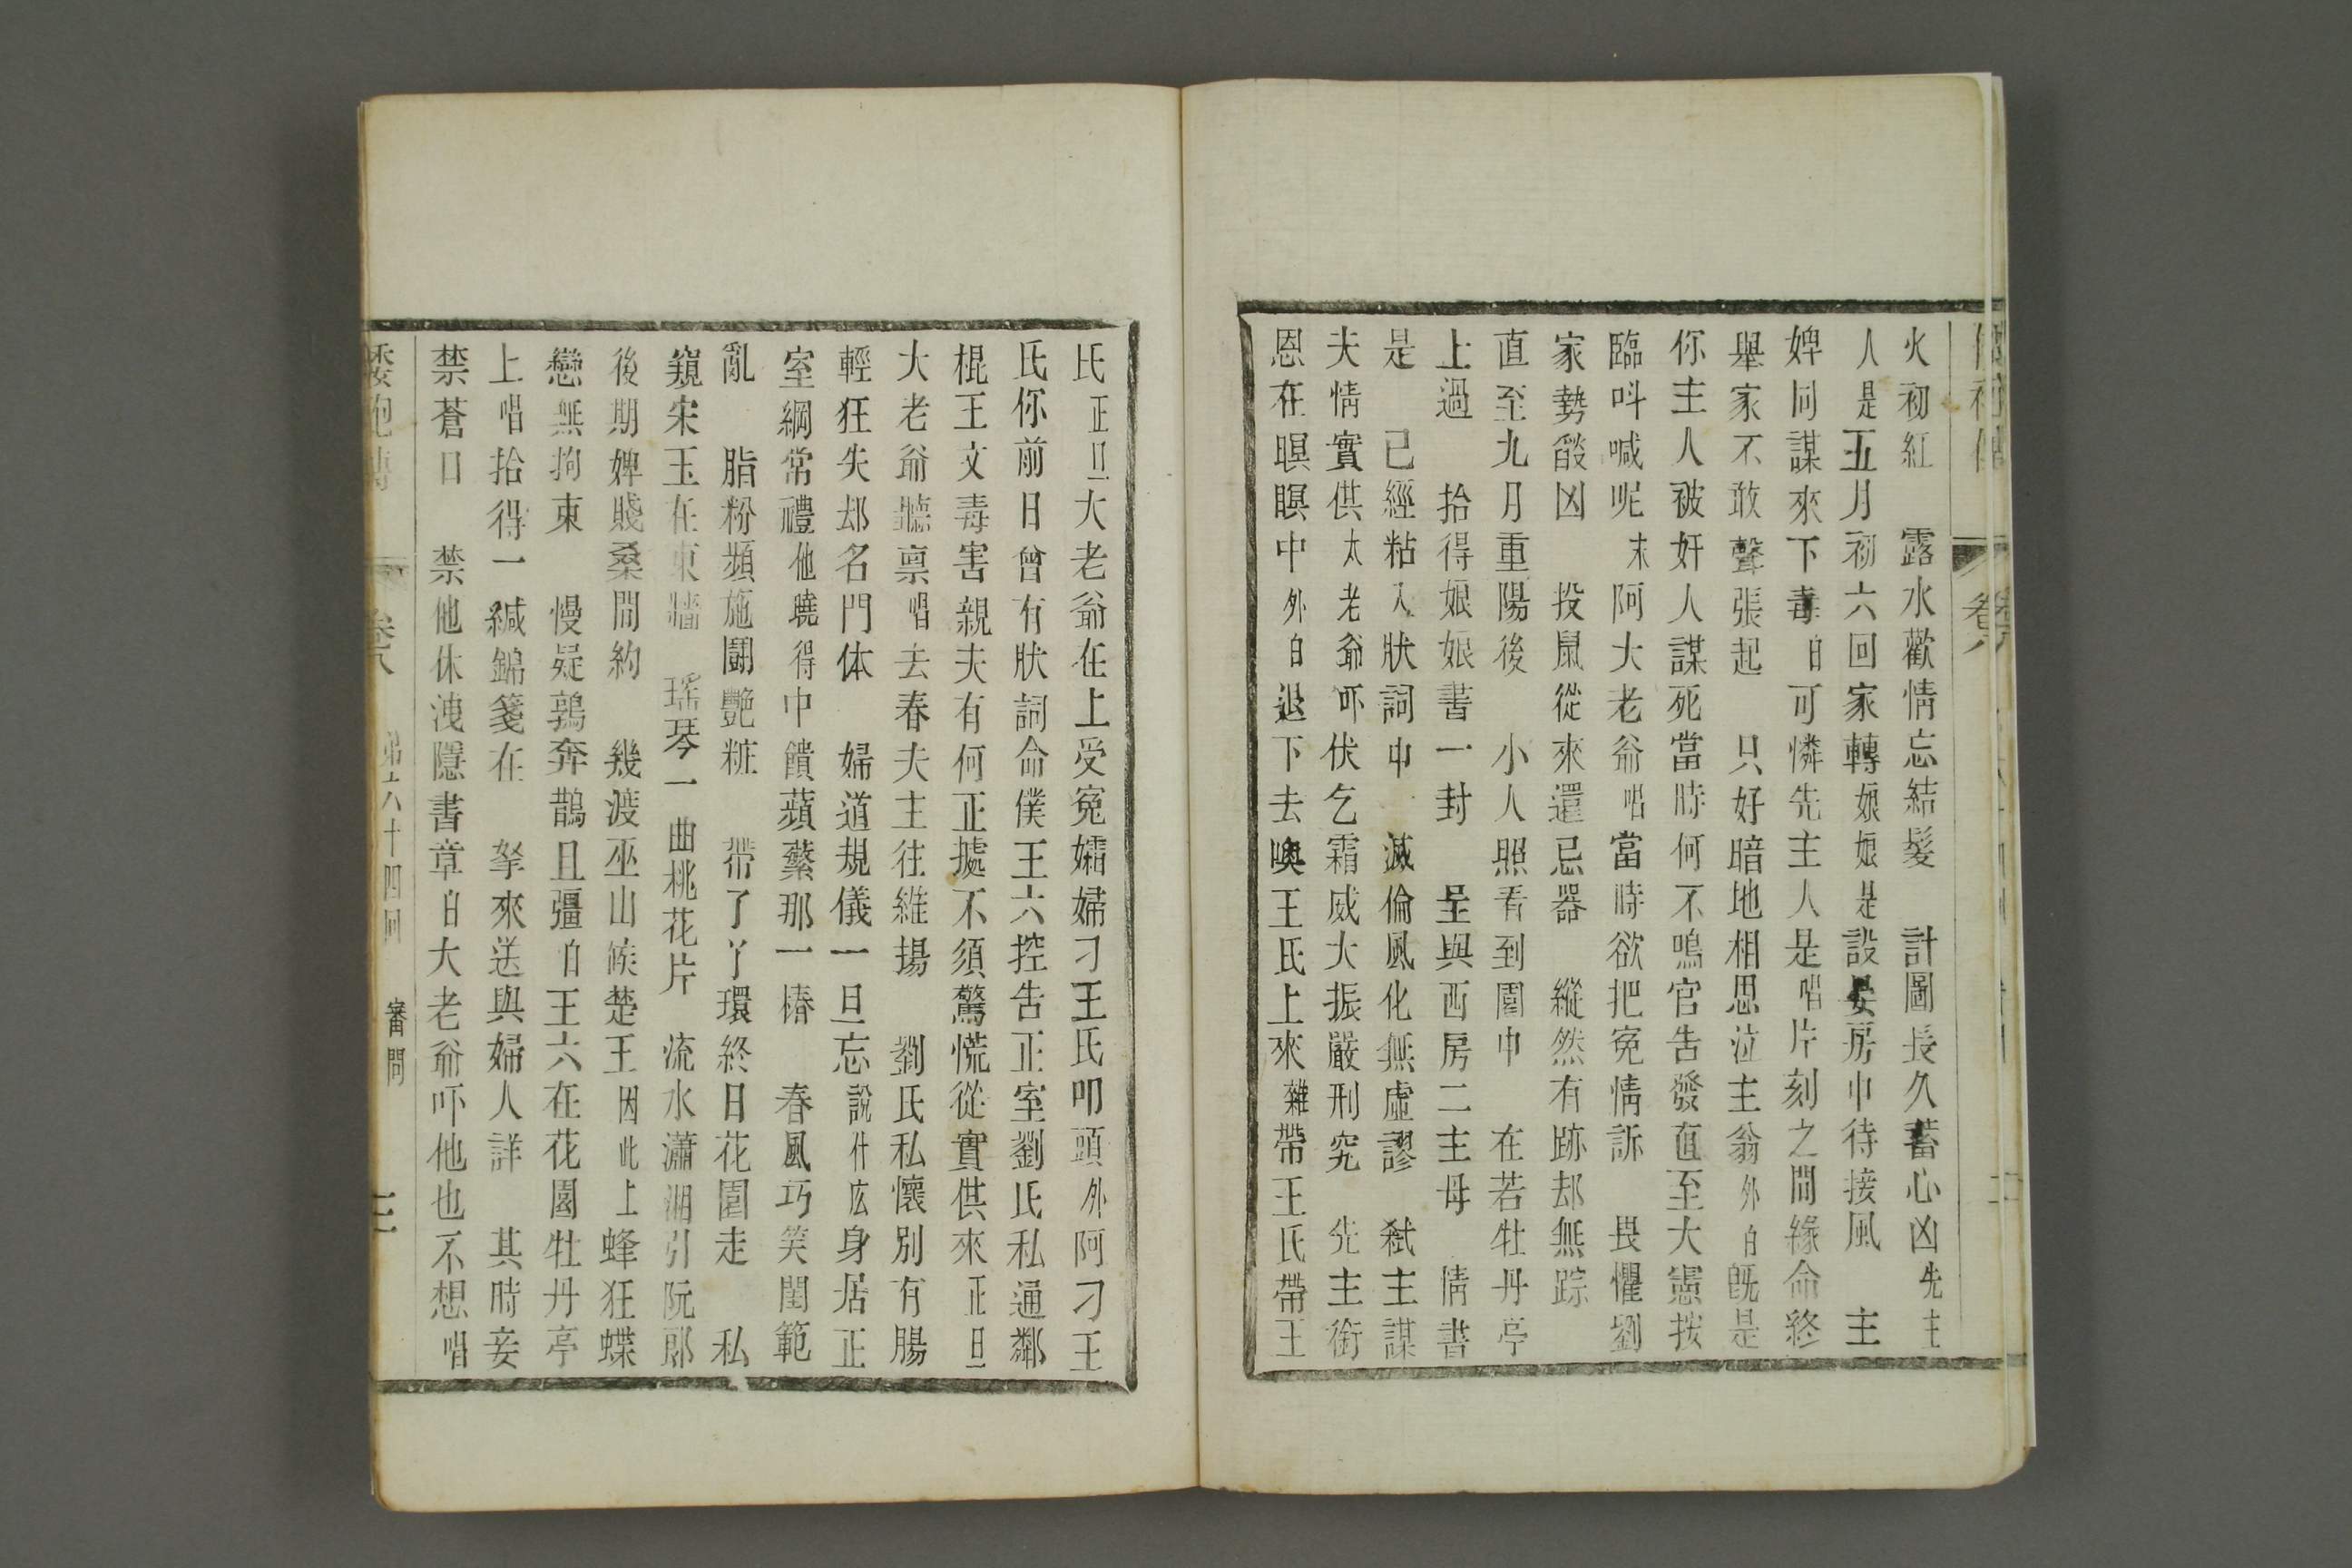 火初紅　露水歡情忘結髮　計圖長久蓄心凶先主
人是五月初六回家轉娘娘是設晏房中待接風　主
婢同謀來下毒白可憐先主人是唱片刻之間緣命終
舉家不敢聲張起　只好暗地相思泣主翁外白旣是
你主人被奸人謀死當時何不鳴官告發直至大憲按
臨呌喊呢末阿大老爺唱當時欲把寃情訴　畏懼劉
家勢燄凶　投鼠從來還忌器　縱然有跡却無踪
直至九月重陽後　小人照看到園中　在若牡丹亭
上過　拾得娘娘書一封　呈與西房二主母　情書
是　已經粘入狀詞中　滅倫風化無虛謬　弒主謀
夫情實供太老爺吓伏乞霜威大振嚴刑究　先主銜
恩在瞑瞑中外白退下去喚王氏上來雜帶王氏帶王
氏正旦大老爺在上受寃孀婦刁王氏叩頭外阿刁王
氏你前日曾有狀詞命僕王六控告正室劉氏私通鄰
棍王文毒害親夫有何正據不須驚慌從實供來正旦
大老爺聽禀唱去春夫主往維揚　劉氏私懷別有腸
輕狂失却名門体　婦道規儀一旦忘說什庅身居正
室綱常禮他曉得中饋蘋蘩那一樁　春風巧笑閨範
亂　脂粉頻施鬪艷粧　帶了丫環終日花園走　私
窺宋玉在東牆　瑤琴一曲桃花片　流水瀟湘引阮郎
後期婢賤桑間約　幾渡巫山候楚王因此上蜂狂蝶
戀無拘束　慢疑鶉奔鵲且彊白王六在花園牡丹亭
上唱拾得一緘錦箋在　拏來送與婦人詳　其時妾
禁蒼口　禁他休洩隱書章白大老爺吓他也不想唱
倭袍傳　卷八　第六十四回　審問　三